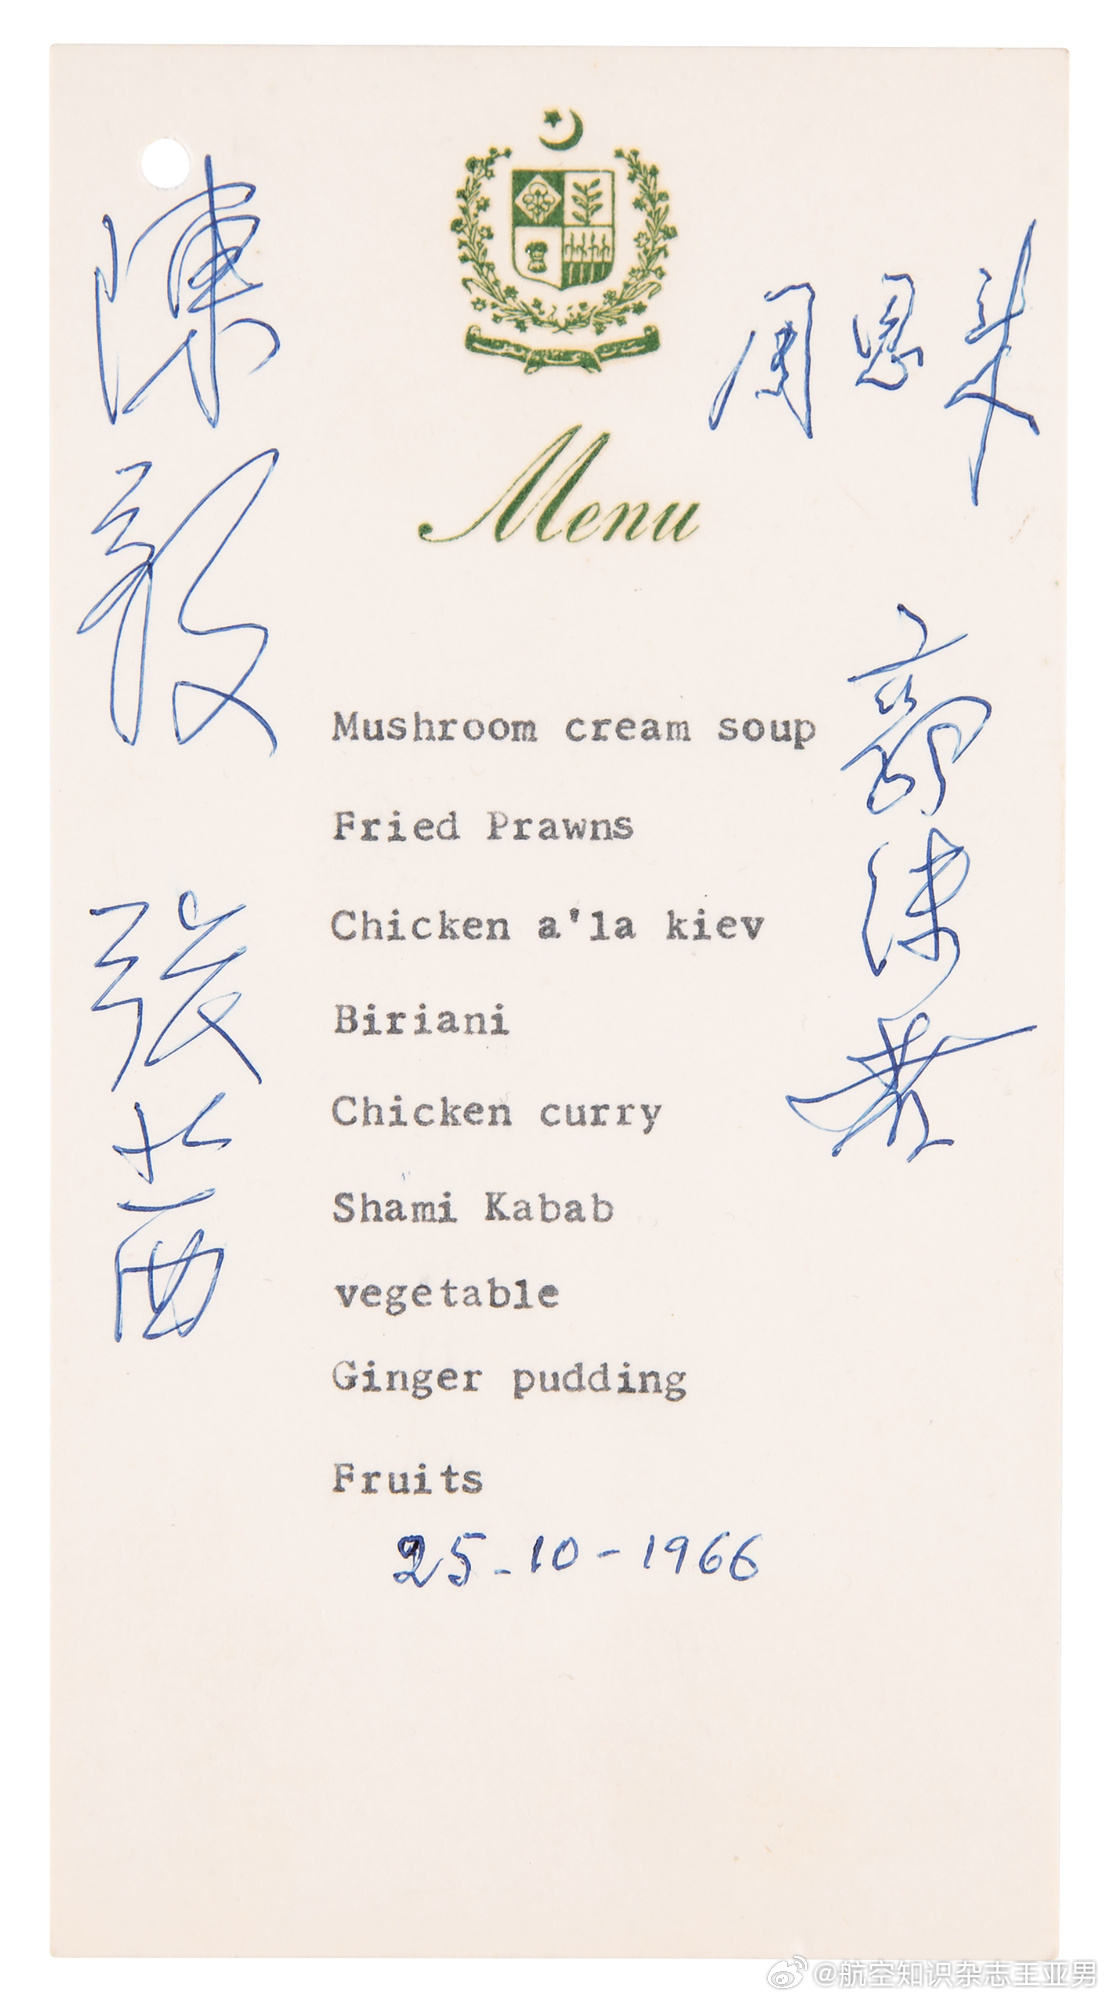 陳毅
周恩来
Menu
Mushroom cream soup
Fried Prawns
Chicken a'la kiev
Biriani
Chicken curry
Shami Kabab
vegetable
Ginger pudding
Fruits
25-10-1966
張茜
郭沫若
@航空知识杂志王亚男